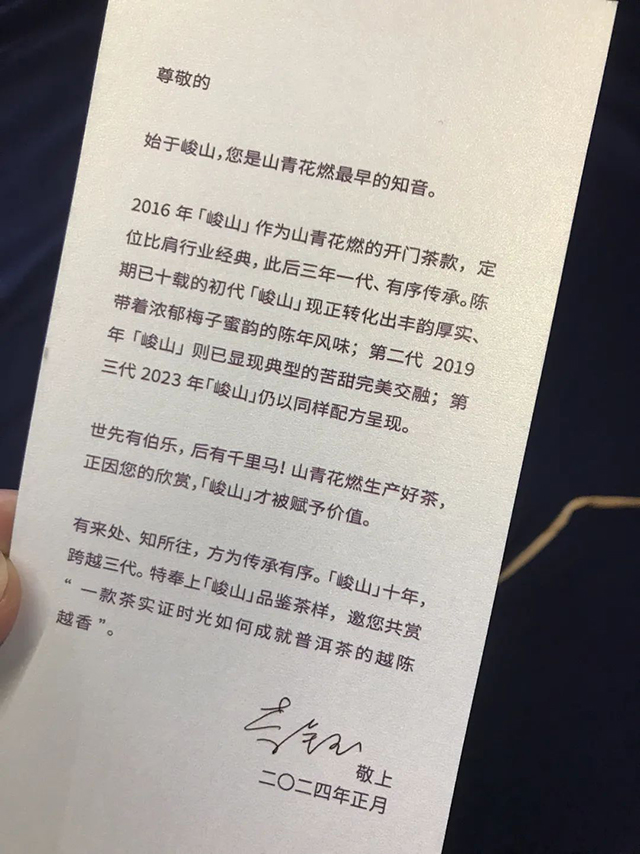 尊敬的
始于峻山，您是山青花燃最早的知音。
2016 年「峻山」作为山青花燃的开门茶款，定
位比肩行业经典，此后三年一代、有序传承。陈
期已十载的初代「峻山」现正转化出丰韵厚实、
带着浓郁梅子蜜韵的陈年风味；第二代 2019
年「峻山」则已显现典型的苦甜完美交融；第
三代 2023 年「峻山」仍以同样配方呈现。
世先有伯乐，后有千里马！山青花燃生产好茶，
正因您的欣赏，「峻山」才被赋予价值。
有来处、知所往，方为传承有序。「峻山」十年，
跨越三代。特奉上「峻山」品鉴茶样，邀您共赏
“一款茶实证时光如何成就普洱茶的越陈
越香”。
敬上
二〇二四年正月